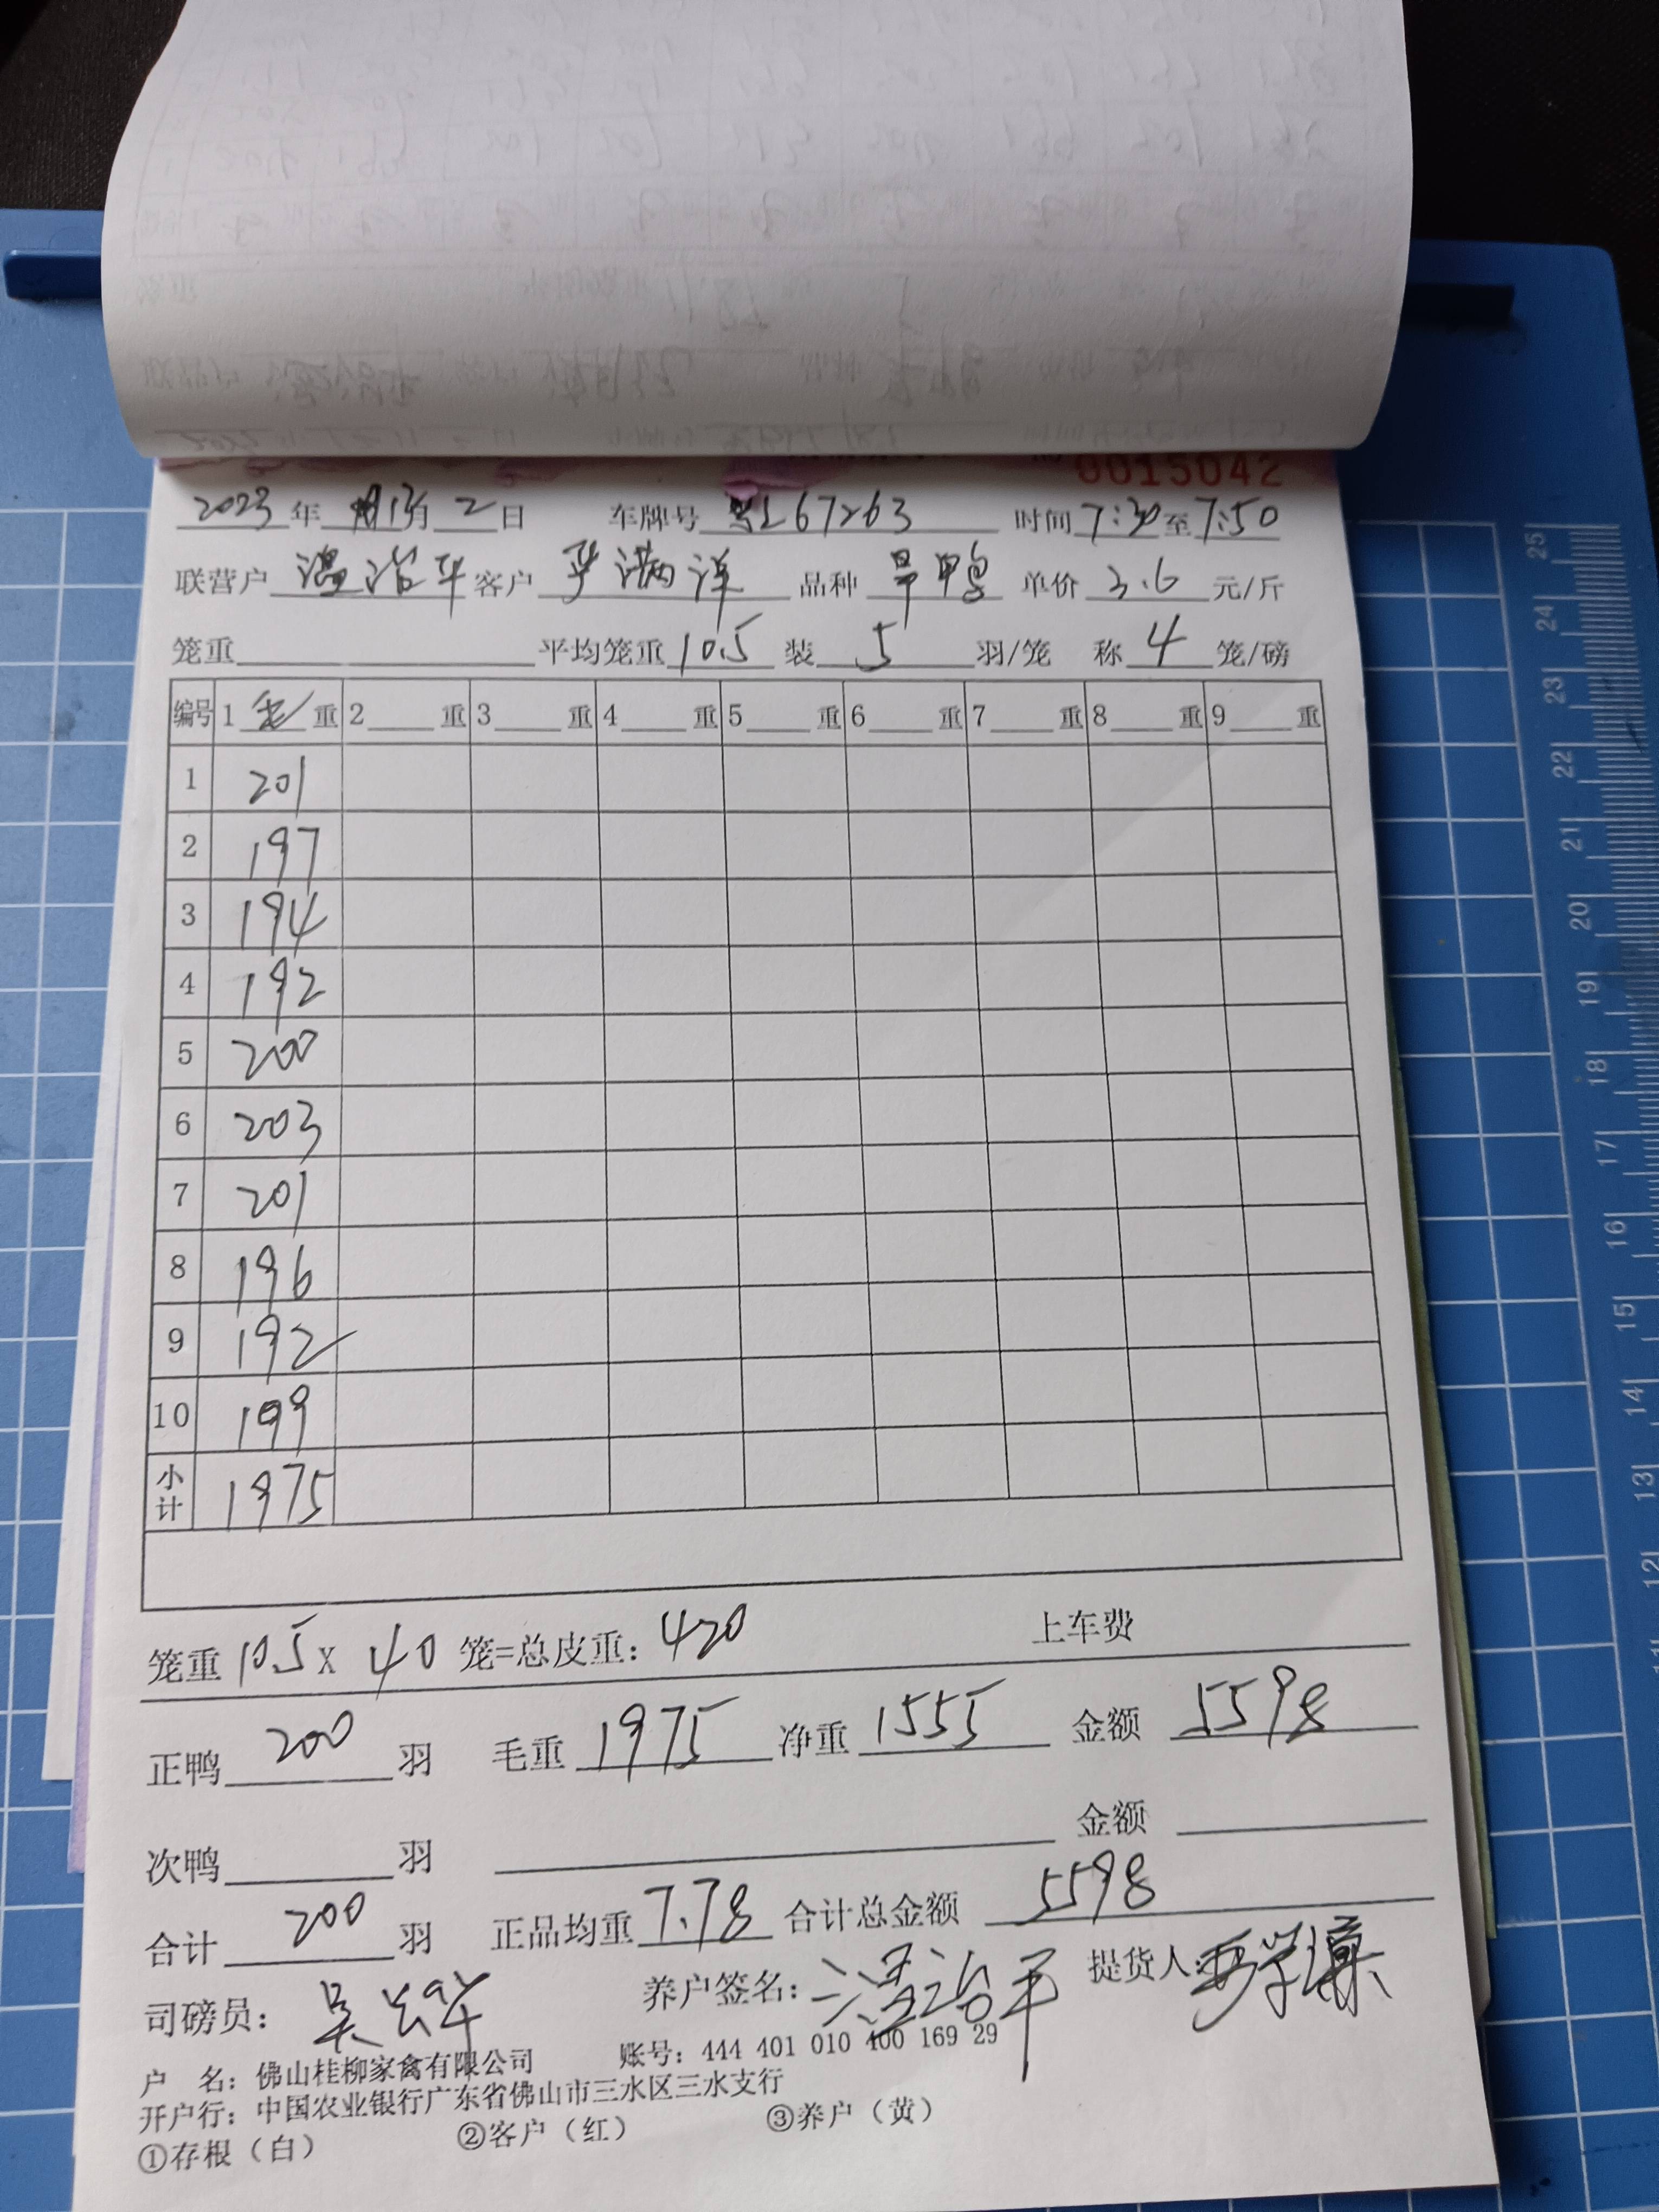 0015042
2023年 月 2日 车牌号 L67263 时间7:30至7:50
联营户 温治平 客户 满洋 品种 旱鸭 单价 3.6 元/斤
笼重 平均笼重 10.5 装 5 羽/笼 称 4 笼/磅
编号 1 毛 重 2 重 3 重 4 重 5 重 6 重 7 重 8 重 9 重
1 201
2 197
3 194
4 192
5 200
6 203
7 201
8 196
9 192
10 199
小计 1975
笼重 10.5 X 40 笼=总皮重: 420 上车费
正鸭 200 羽 毛重 1975 净重 1555 金额 5598
次鸭 羽 金额
合计 200 羽 正品均重 7.78 合计总金额 5598
司磅员: 吴 华 养户签名: 温治平 提货人:
户 名: 佛山桂柳家禽有限公司 账号: 444 401 010 400 169 29
开户行: 中国农业银行广东省佛山市三水区三水支行
①存根（白） ②客户（红） ③养户（黄）
25
24
23
22
21
20
19
18
17
16
15
14
13
12
11